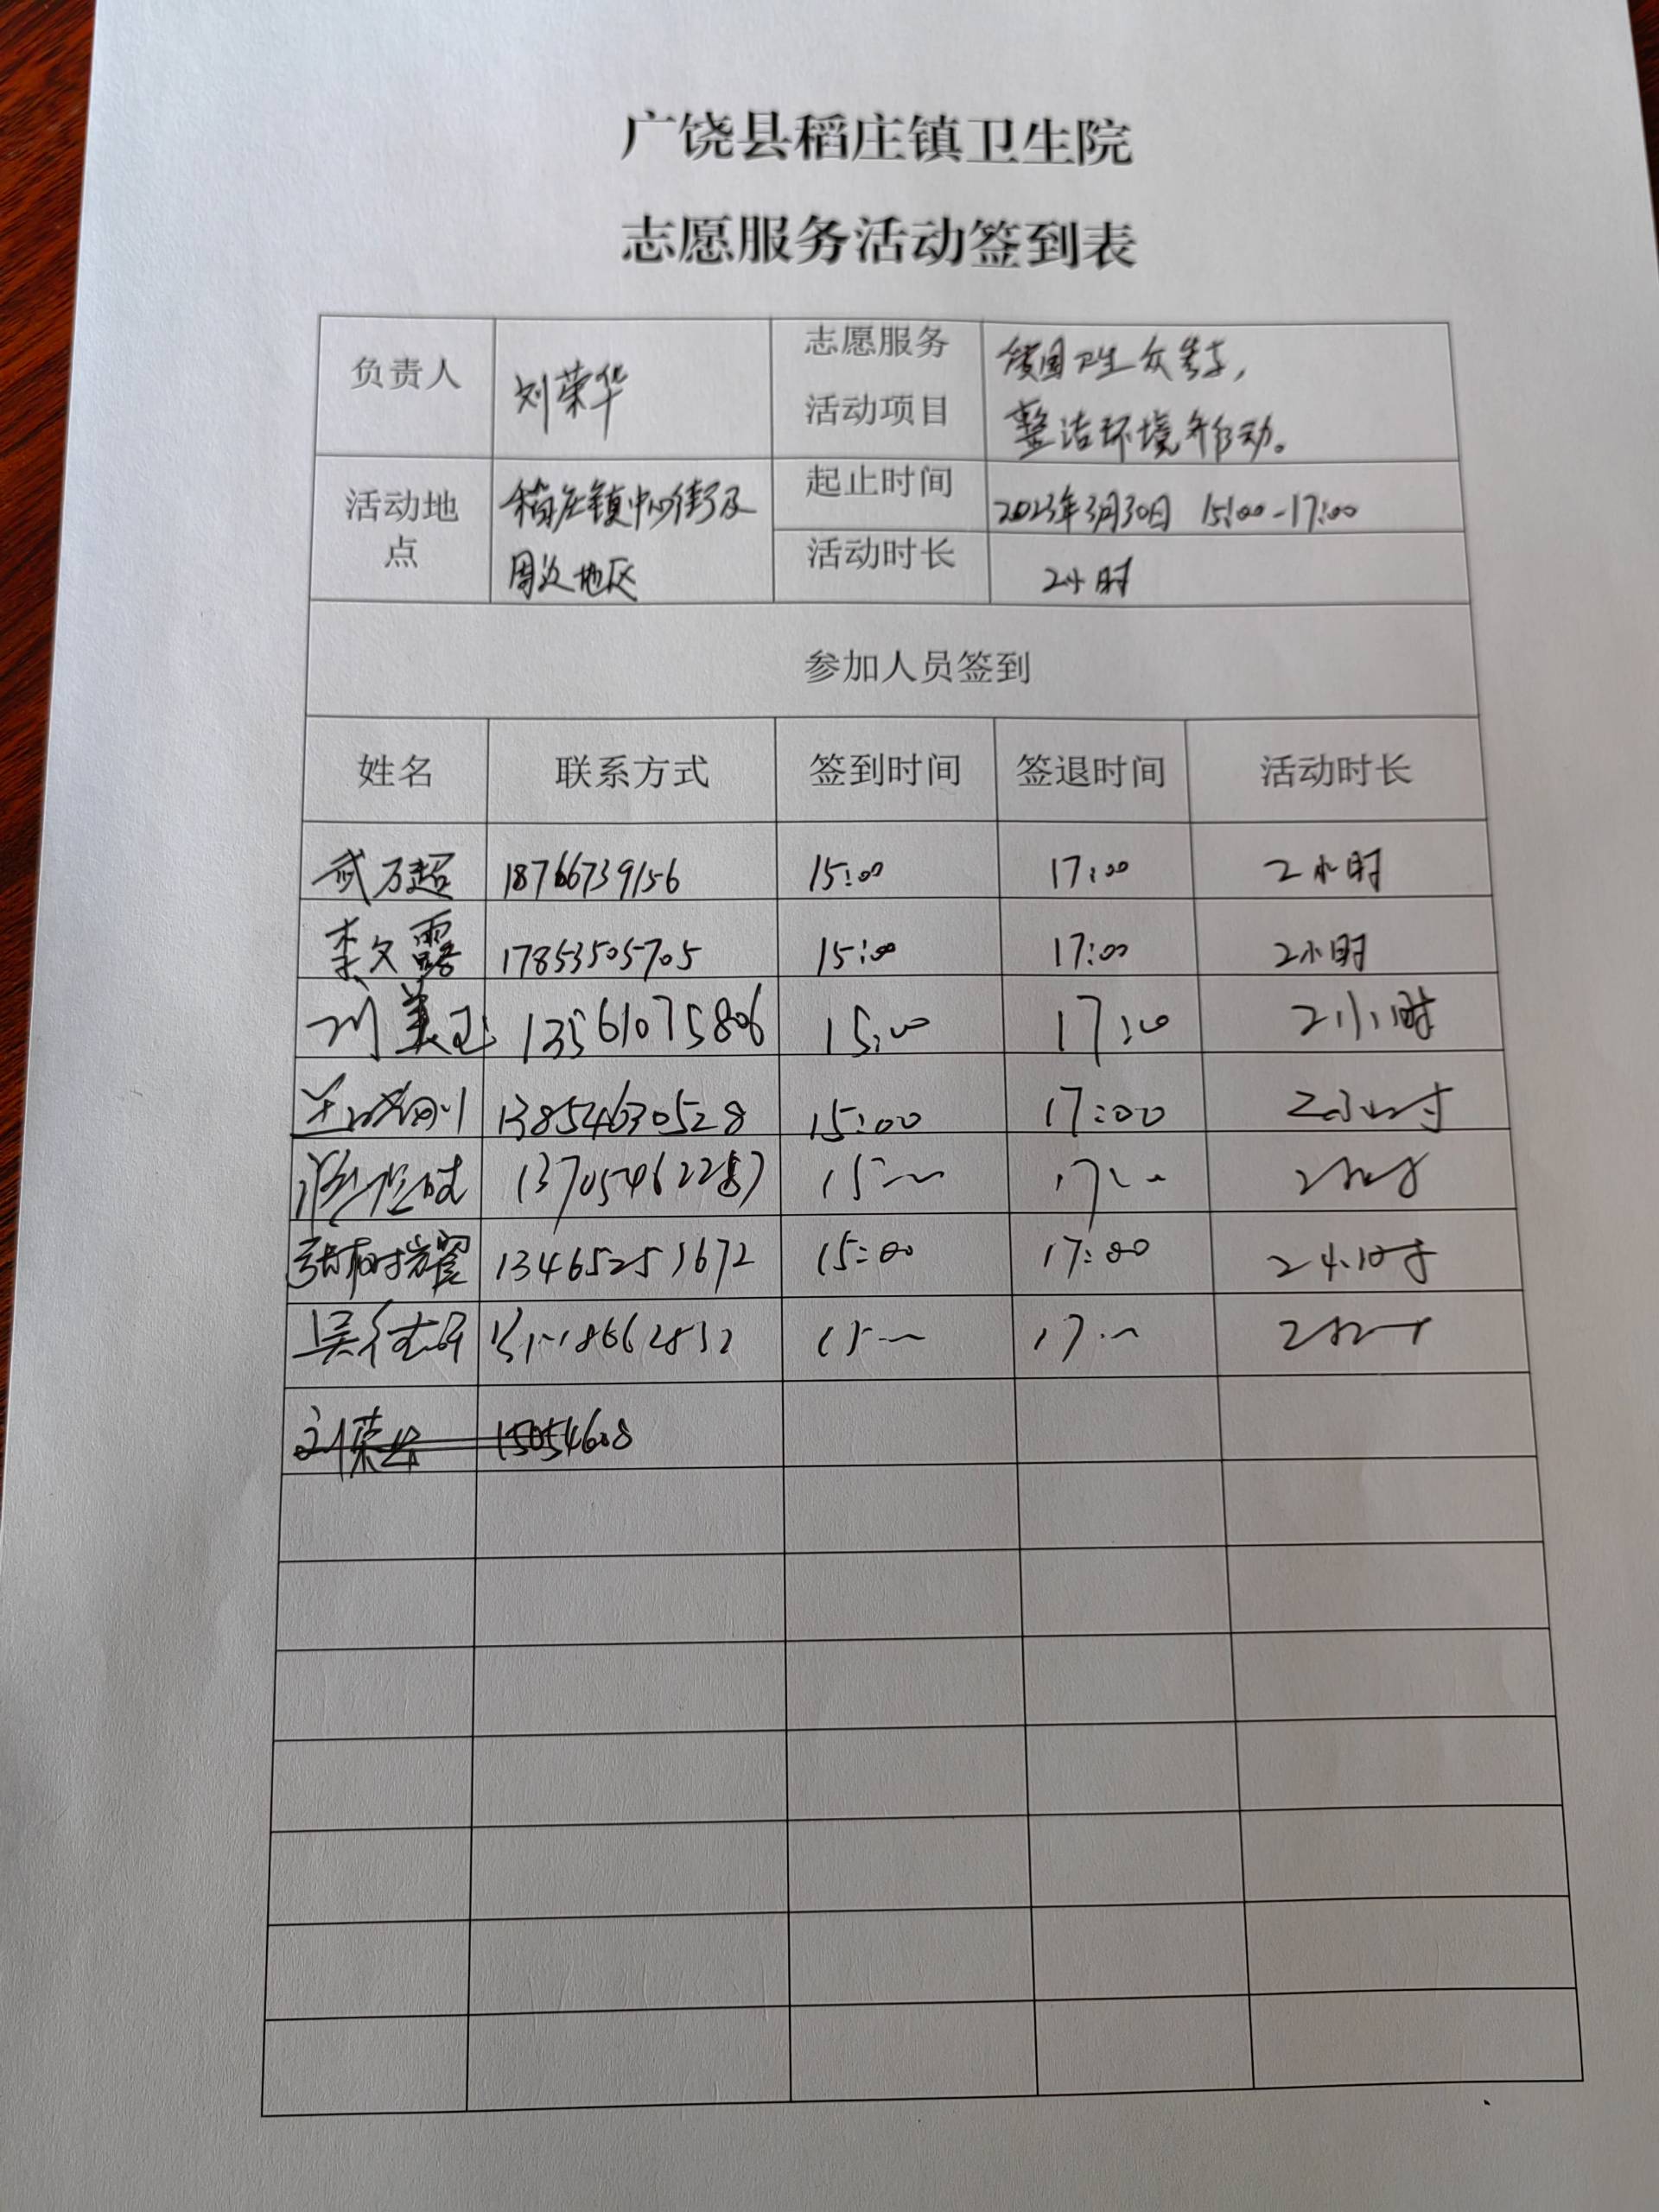 广饶县稻庄镇卫生院
志愿服务活动签到表
负责人 刘荣华 志愿服务活动项目 爱国卫生众参与,
整洁环境齐行动。
活动地点 稻庄镇中心街及
周边地区
起止时间 2023年3月30日 15:00-17:00
活动时长 2小时
参加人员签到
姓名 联系方式 签到时间 签退时间 活动时长
武万超 18766739156 15:00 17:00 2小时
李文露 17853505705 15:00 17:00 2小时
刘美玉 13561075806 15:00 17:00 2小时
13854630528 15:00 17:00 2小时
13705462287 15:00 17:00 2小时
张树耀 13465251672 15:00 17:00 2小时
吴 15:00 17:00 2小时
刘荣华 15054608